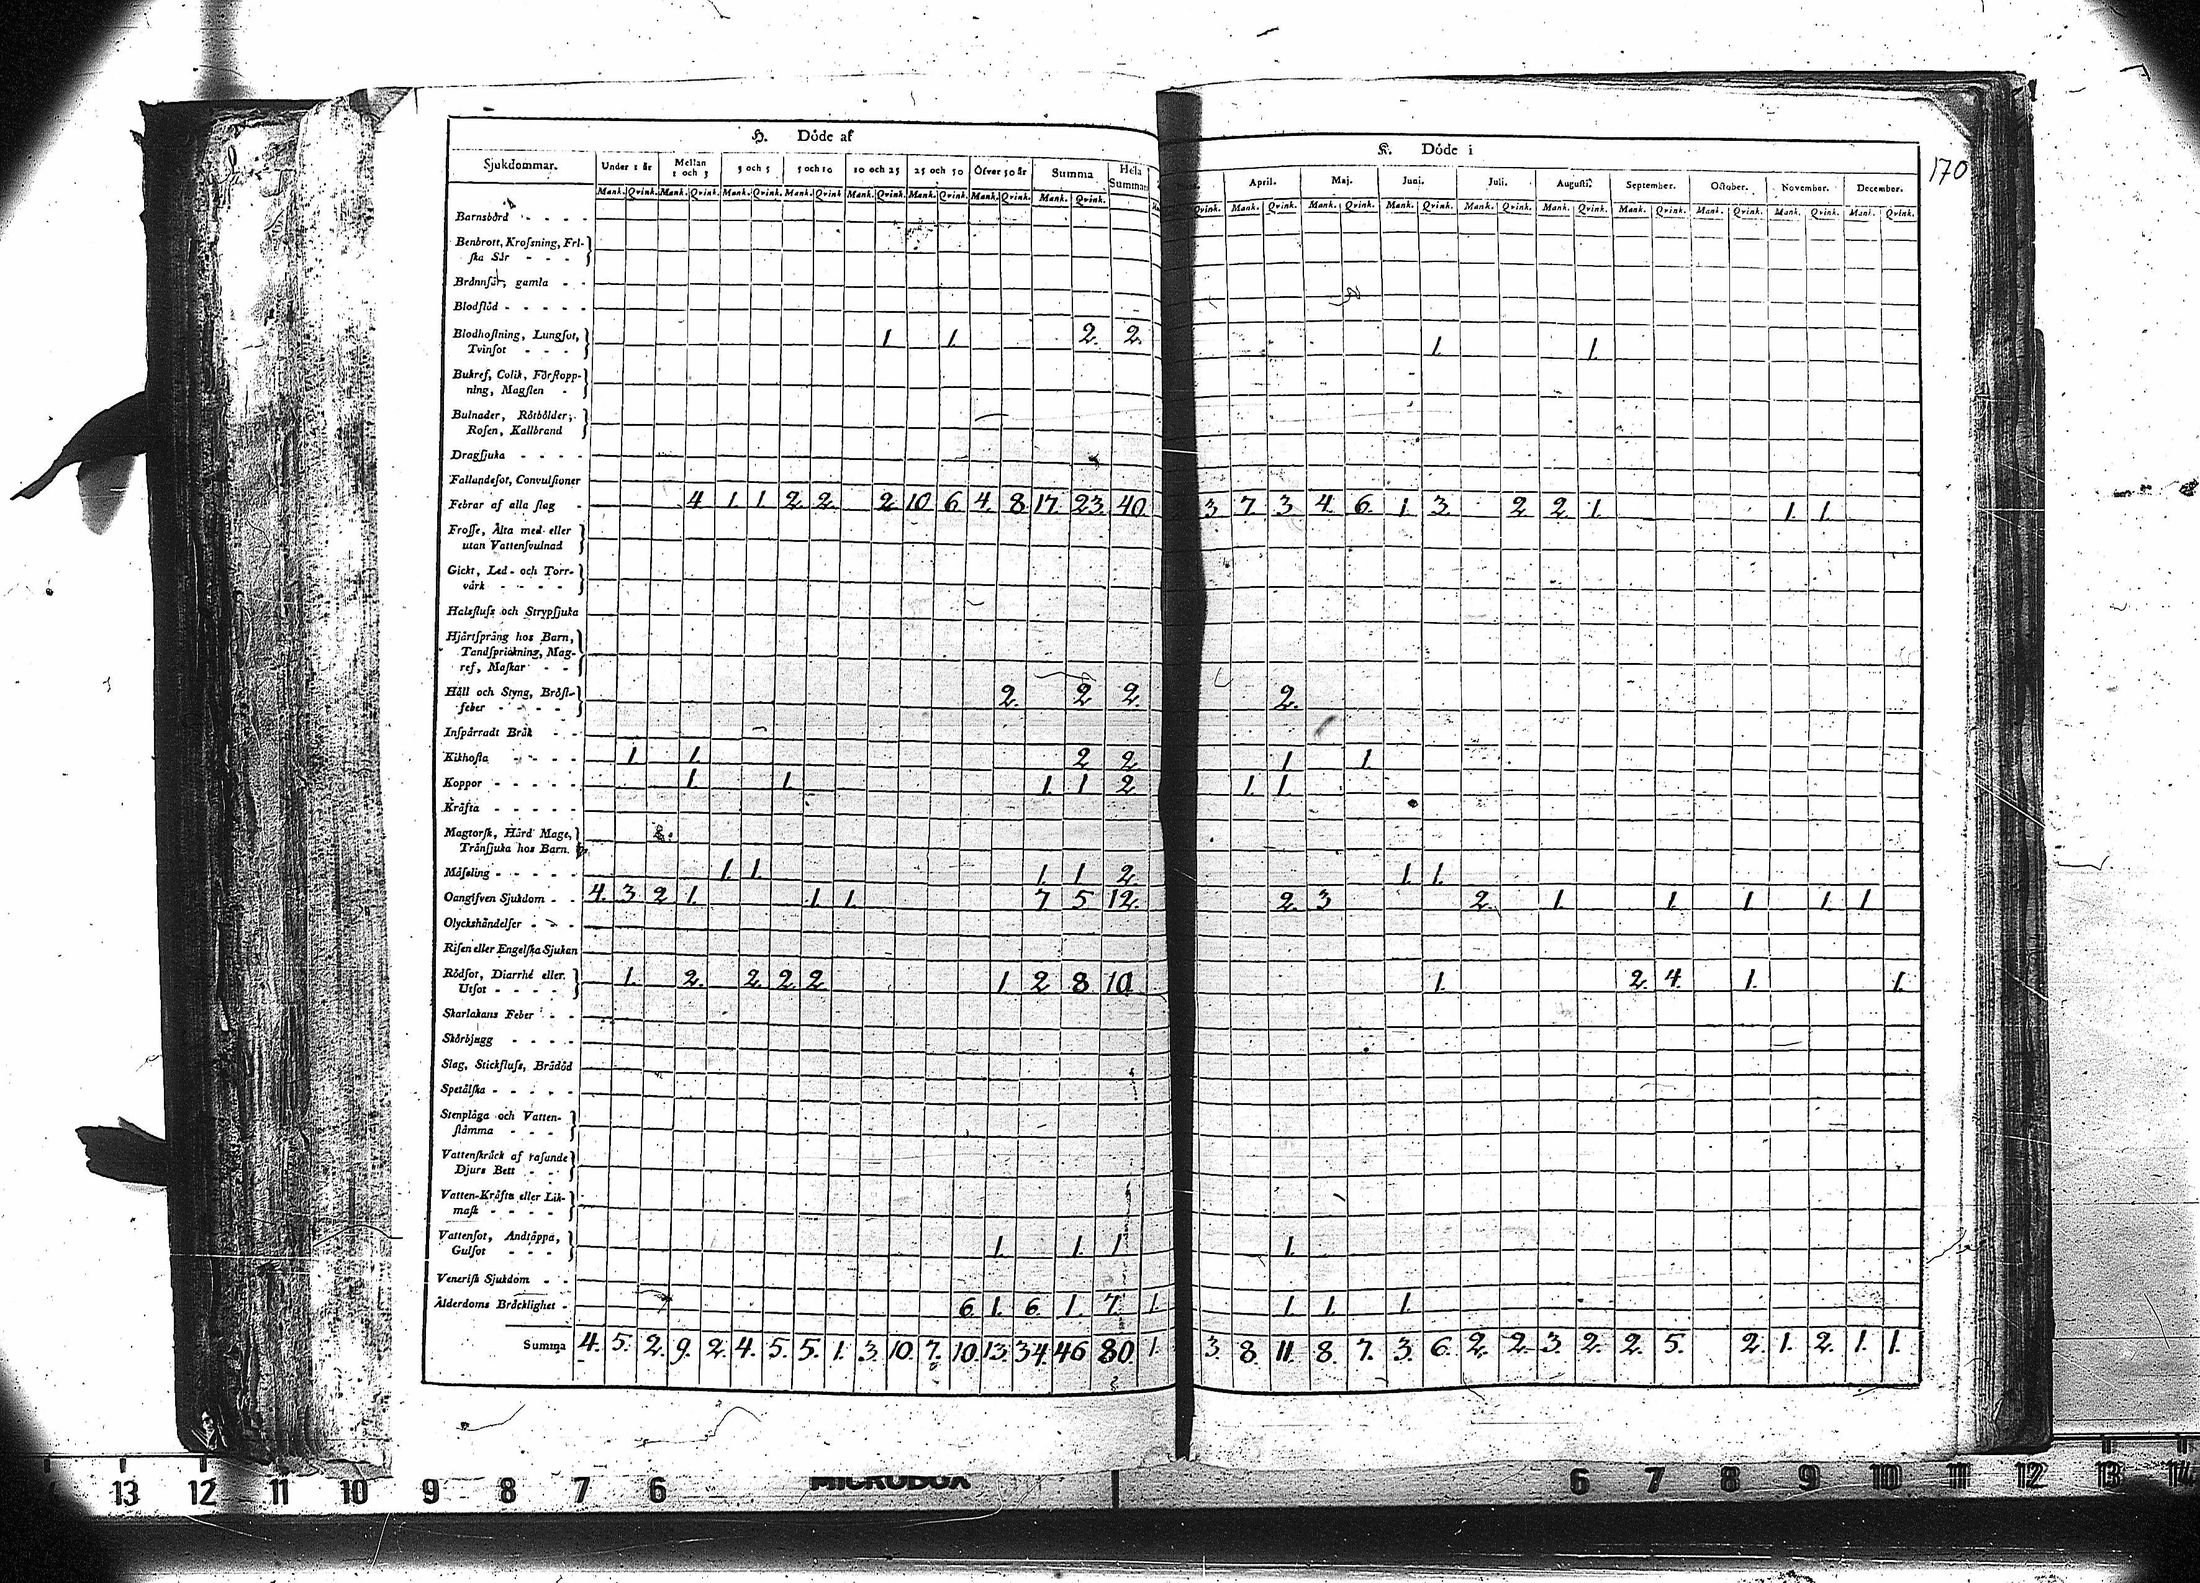 H. Döde af
Sjukdommar. Under 1 år Mellan 1 och 3 3 och 5 5 och 10 10 och 25 25 och 50 Öfver 50 år Summa Hela Summan
Mank. Qvink. Mank. Qvink. Mank. Qvink. Mank. Qvink. Mank. Qvink. Mank. Qvink. Mank. Qvink. Mank. Qvink.
Barnsbörd
Benbrott, Krossning, Fri-
ska Sår
Brännsår, gamla
Blodflöd
Blodhostning, Lungsot,
Tvinsot 1. 1. 2. 2.
Bukref, Colik, Förstopp-
ning, Magsten
Bulnader, Rötbölder,
Rosen, Kallbrand
Dragsjuka
Fallandesot, Convulsioner
Febrar af alla slag 4 1. 1. 2. 2. 2. 10 6 4. 8 17. 23. 40
Frosse, Älta med eller
utan Vattensvulnad
Gickt, Led- och Torr-
värk
Halsfluss och Strypsjuka
Hjärtsprång hos Barn,
Tandsprickning, Mag-
ref, Maskar
Håll och Styng, Bröst-
feber 2. 2 2.
Inspärradt Bråk
Kikhosta 1 1. 2 2
Koppor 1. 1. 1. 1 2
Kräfta
Magtorsk, Hård Mage,
Tränsjuka hos Barn.
Måsling 1. 1. 1. 1 2.
Oangifven Sjukdom 4. 3 2 1. 1. 1. 7 5 12.
Olyckshändelser
Risen eller Engelska Sjukan
Rödsot, Diarrhé eller
Utsot 1. 2. 2 2 2 1 2 8 10
Skarlakans Feber
Skörbjugg
Slag, Stickfluss, Brådöd
Spetälska
Stenplåga och Vatten-
stämma
Vattenskräck af rasande
Djurs Bett
Vatten-Kräfta eller Lik-
mask
Vattensot, Andtäppa,
Gulsot 1. 1. 1
Venerisk Sjukdom
Ålderdoms Bräcklighet 6. 1. 6 1. 7. 1.
Summa 4. 5. 2. 9. 2. 4. 5. 5. 1. 3. 10. 7. 10. 13. 34. 46 80. 1.
170
K. Döde i
April. Maj. Juni. Juli. Augusti. September. October. November. December.
Qvink. Mank. Qvink. Mank. Qvink. Mank. Qvink. Mank. Qvink. Mank. Qvink. Mank. Qvink. Mank. Qvink. Mank. Qvink. Mank. Qvink.
1. 1.
3. 7. 3 4. 6. 1. 3. 2 2. 1. 1. 1.
2.
1 1.
1. 1.
1. 1.
2. 3 2. 1. 1. 1. 1. 1.
1. 2. 4. 1. 1.
1.
1. 1. 1.
3. 8. 11. 8. 7. 3. 6. 2. 2. 3. 2. 2. 5. 2. 1. 2. 1. 1.
13 12 11 10 9 8 7 6
MICROBOX
6 7 8 9 10 11 12 13 14